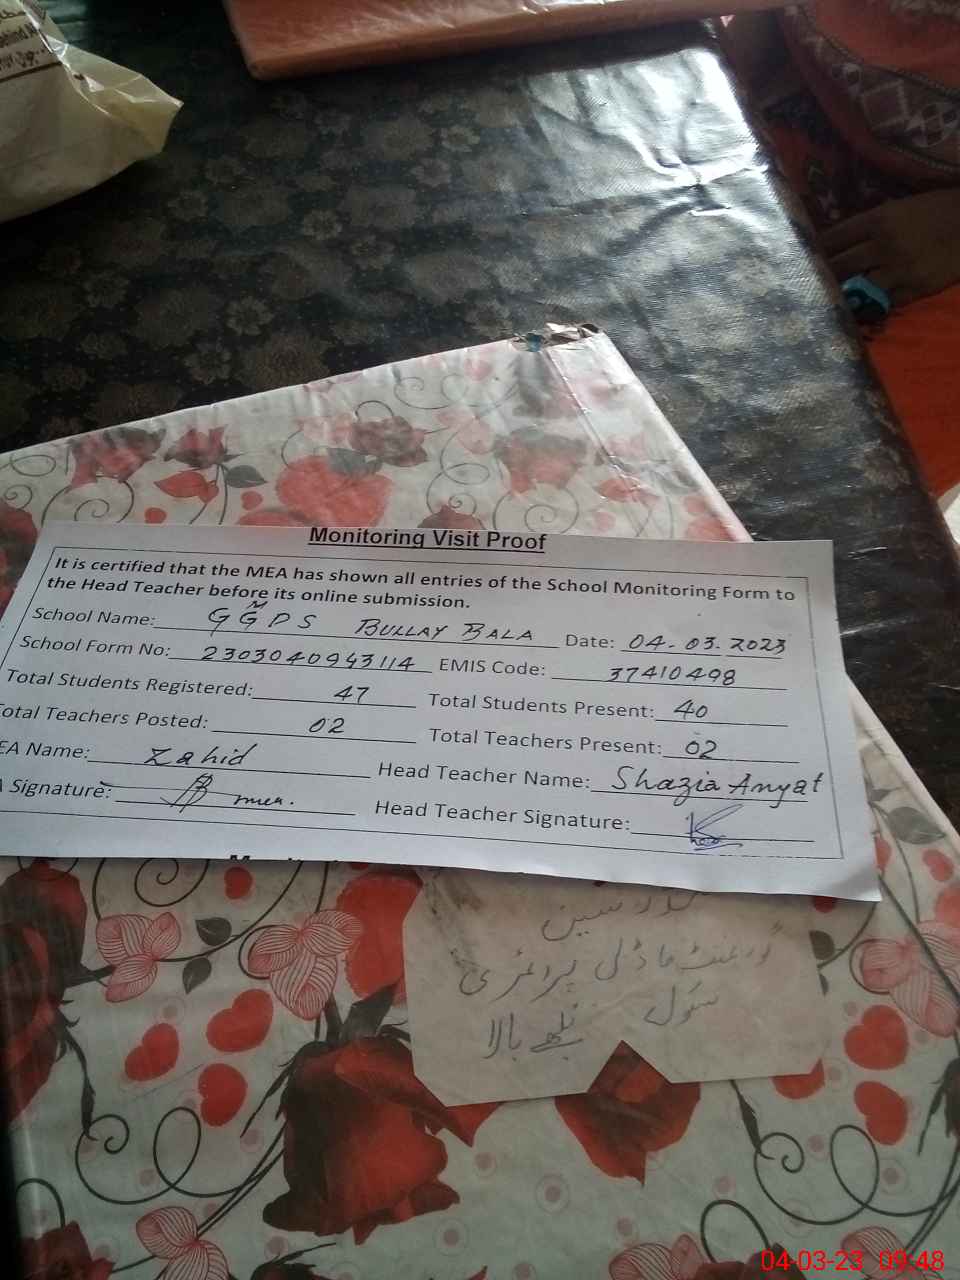 ehind M
Monitoring Visit Proof
It is certified that the MEA has shown all entries of the School Monitoring Form to
the Head Teacher before its online submission.
School Name: GGMPS BULLAY BALA Date: 04-03-2023
School Form No: 2303040943114 EMIS Code: 37410498
Total Students Registered: 47 Total Students Present: 40
Total Teachers Posted: 02 Total Teachers Present: 02
EA Name: Zahid Head Teacher Name: Shazia Anyat
Signature: Head Teacher Signature:
گورنمنٹ ماڈل پرائمری
سکول بلھے بالا
04-03-23 09:48